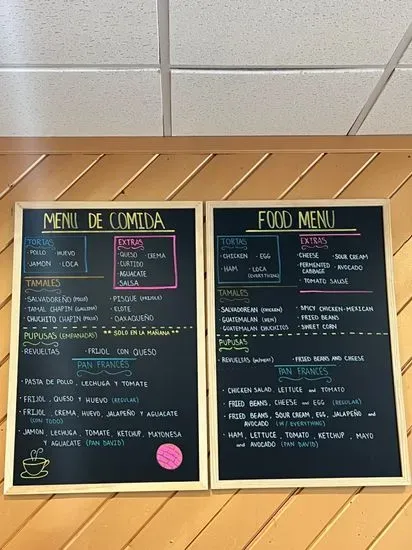 MENU DE COMIDA
TORTAS
· POLLO · HUEVO
JAMON · LOCA
EXTRAS
· QUESO · CREMA
· CURTIDO
· AGUACATE
· SALSA
TAMALES
· SALVADOREÑO (POLLO)
· TAMAL CHAPIN (GALLINA)
· CHUCHITO CHAPIN (POLLO)
· PISQUE (FRIJOLES)
· ELOTE
· OAXAQUEÑO
PUPUSAS (EMPANADAS) ** SOLO EN LA MAÑANA **
· REVUELTAS · FRIJOL CON QUESO
PAN FRANCES
· PASTA DE POLLO, LECHUGA Y TOMATE
· FRIJOL, QUESO Y HUEVO (REGULAR)
· FRIJOL, CREMA, HUEVO, JALAPEÑO Y AGUACATE
(CON TODO)
· JAMON, LECHUGA, TOMATE, KETCHUP, MAYONESA
Y AGUACATE (PAN DAVID)
FOOD MENU
TORTAS
· CHICKEN · EGG
· HAM · LOCA
(EVERYTHING)
EXTRAS
· CHEESE · SOUR CREAM
· FERMENTED
CABBAGE · AVOCADO
· TOMATO SAUSE
TAMALES
· SALVADOREAN (CHICKEN)
· GUATEMALAN (HEN)
· GUATEMALAN CHUCHITOS
· SPICY CHICKEN-MEXICAN
· FRIED BEANS
· SWEET CORN
PUPUSAS
· REVUELTAS · FRIED BEANS AND CHEESE
PAN FRANCES
· CHICKEN SALAD, LETTUCE and TOMATO
· FRIED BEANS, CHEESE and EGG (REGULAR)
· FRIED BEANS, SOUR CREAM, EGG, JALAPEÑO and
AVOCADO (W/ EVERYTHING)
· HAM, LETTUCE, TOMATO, KETCHUP, MAYO
and AVOCADO (PAN DAVID)